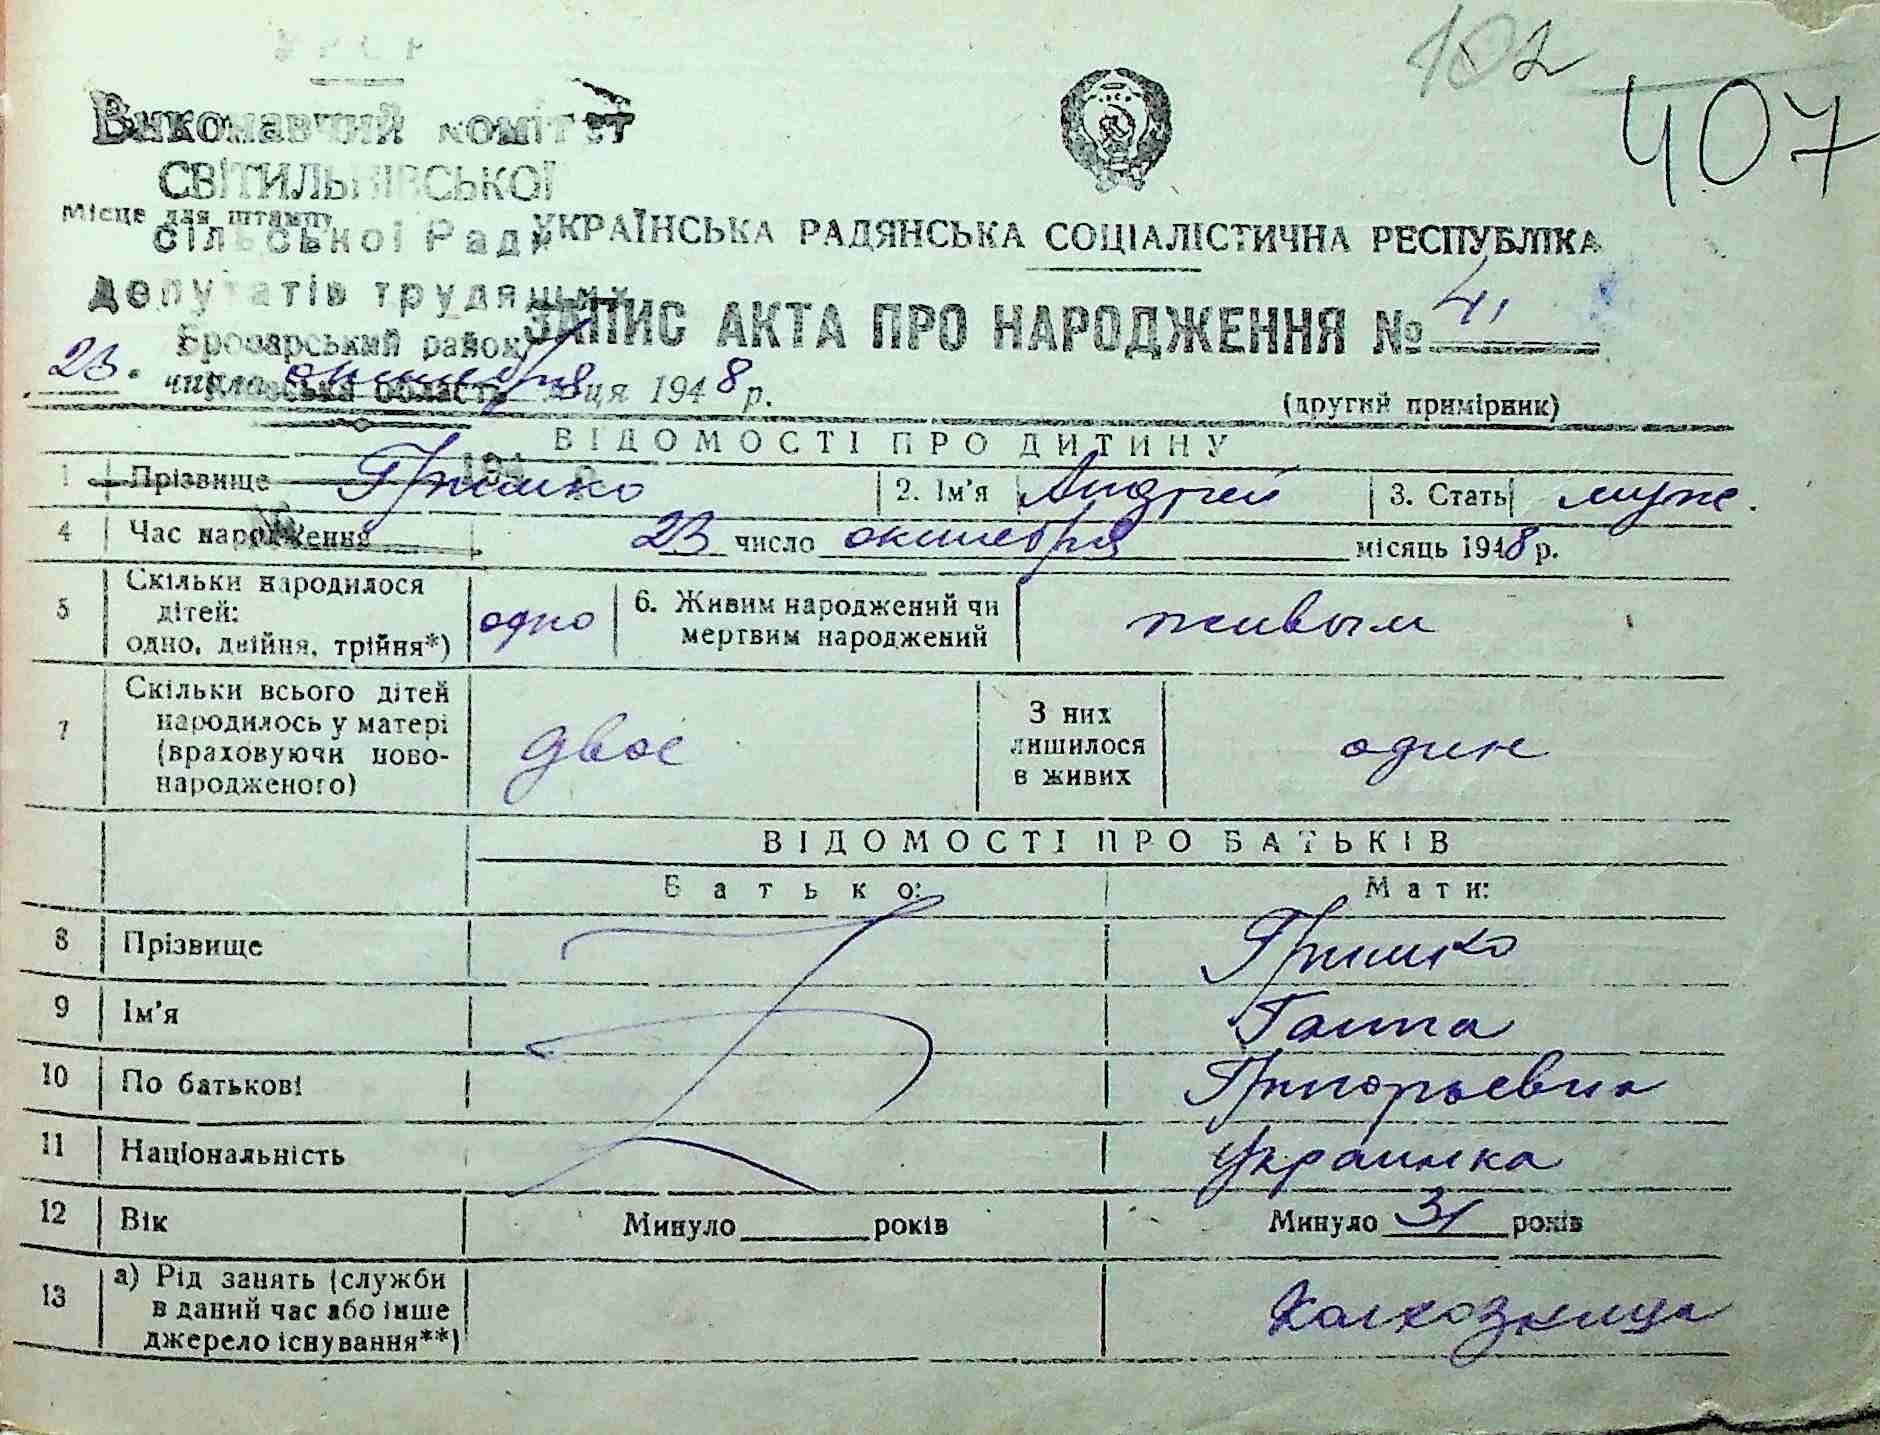 УРСР
102
407
Виконавчий комітет
СВІТИЛЬНІВСЬКОЇ
Місце для штампу
сільської Ради
УКРАЇНСЬКА РАДЯНСЬКА СОЦІАЛІСТИЧНА РЕСПУБЛІКА
депутатів трудящих
ЗАПИС АКТА ПРО НАРОДЖЕННЯ №
Броварський район
23 числа октября місяця 1948 р.
Київська область
(другий примірник)
ВІДОМОСТІ ПРО ДИТИНУ
194 р.
1 Прізвище Гришко 2. Ім'я Андрей 3. Стать муж.
4 Час народження 23 число октября місяць 1948 р.
5 Скільки народилося дітей: одно, двійня, трійня*) одно 6. Живим народжений чи мертвим народжений живым
7 Скільки всього дітей народилось у матері (враховуючи новонародженого) двое З них лишилося в живих один
ВІДОМОСТІ ПРО БАТЬКІВ
Батько: Мати:
8 Прізвище Гришко
9 Ім'я Ганна
10 По батькові Григорьевна
11 Національність украинка
12 Вік Минуло років Минуло 31 років
13 а) Рід занять (служби в даний час або інше джерело існування**) Колхозница